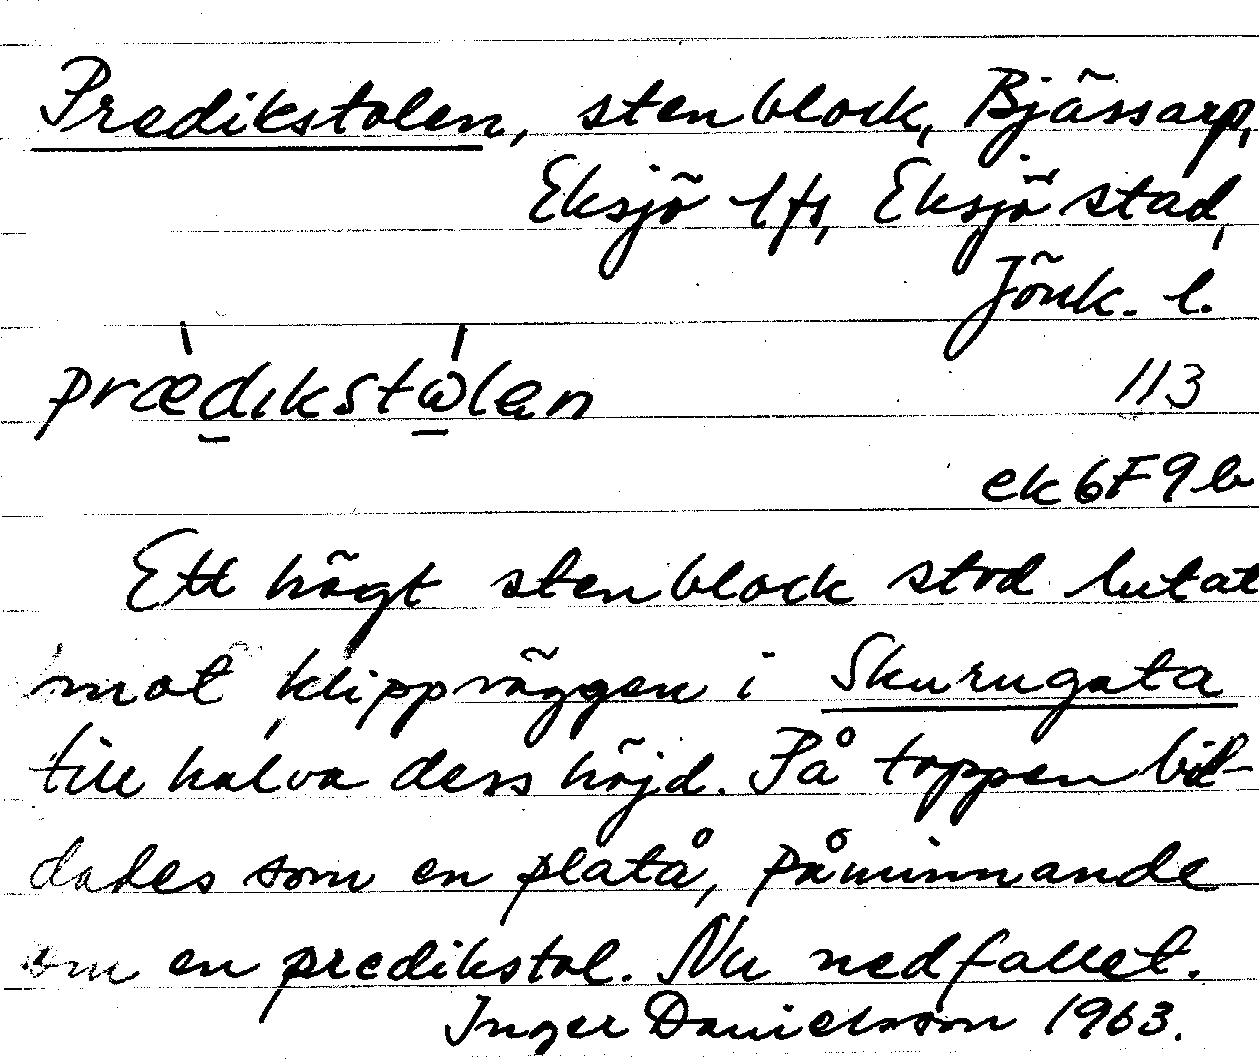 Predikstolen, stenblock, Bjässarp,
Eksjö lfs, Eksjö stad,
Jönk. l.
prædıkstωlən 113
ek6F9b
Ett högt stenblock stod lutat
mot klippväggen i Skurugata
till halva dess höjd. På toppen bil-
dades som en platå, påminnande
om en predikstol. Nu nedfallet.
Inger Danielsson 1963.